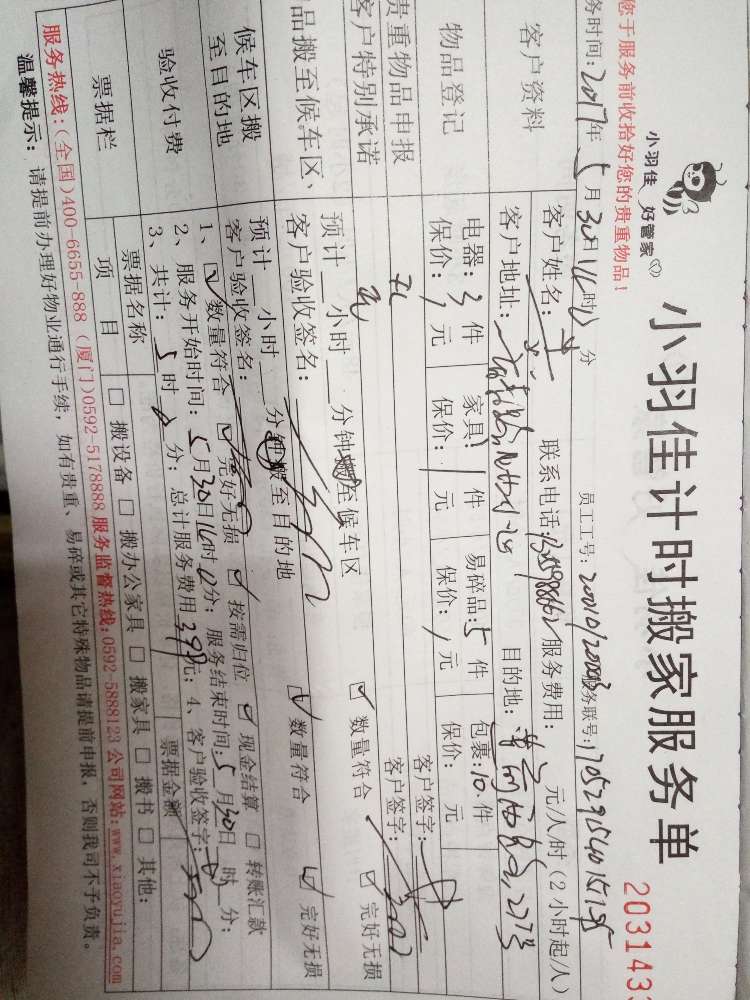 小羽佳 好管家
小羽佳计时搬家服务单
203143
您于服务前收拾好您的贵重物品！
务时间：2017年 5月30日16时0分 员工工号： 服务联号：
客户资料
客户姓名： 联系电话： 服务费用： 元/人/时（2小时起/人）
客户地址： 目的地：
物品登记
电器：3件 家具：1件 易碎品：5件 包裹：10件
保价：/元 保价：/元 保价：/元 保价： 元
贵重物品申报 无 客户签字：
客户特别承诺 无 客户签字：
品搬至候车区、
预计 小时 分钟搬至候车区 ☑ 数量符合 ☑ 完好无损
客户验收签名：
候车区搬
至目的地
预计 小时 分钟搬至目的地 ☑ 数量符合 ☑ 完好无损
客户验收签名：
验收付费
1、☑ 数量符合 ☑ 完好无损 ☑ 按需归位 ☑ 现金结算 □ 转账汇款
2、服务开始时间：5月30日16时0分；服务结束时间：5月30日 时 分；
3、共计：5时0分；总计服务费用 元；4、客户验收签字：
票据栏
票据名称 票据金额
项 目 □ 搬设备 □ 搬办公家具 □ 搬家具 □ 搬书 □ 其他：
服务热线：(全国)400-6655-888 (厦门)0592-5178888 服务监督热线：0592-5888123 公司网站：www.xiaoyujia.com
温馨提示： 请提前办理好物业通行手续，如有贵重、易碎或其它特殊物品请提前申报，否则我司不予负责。